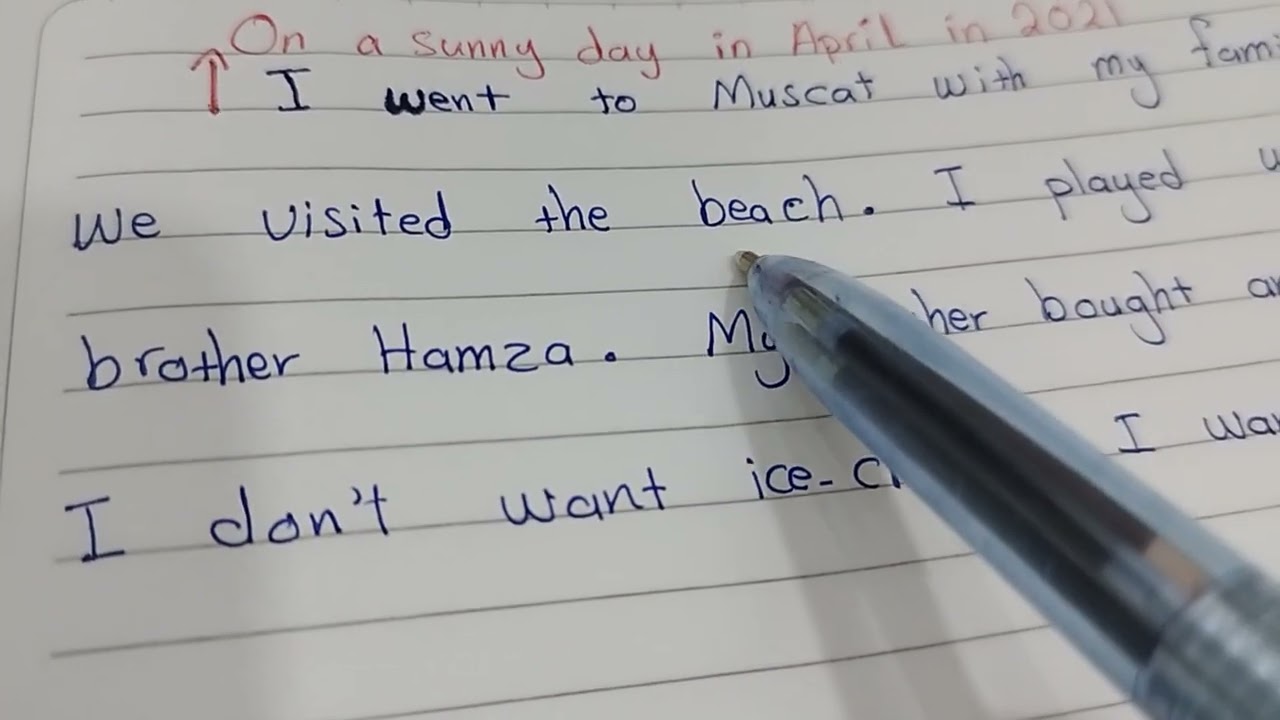 On a sunny day in April in 2021
I went to Muscat with my fami
We visited the beach. I played
brother Hamza. My her bought
I don't want ice-c I wa